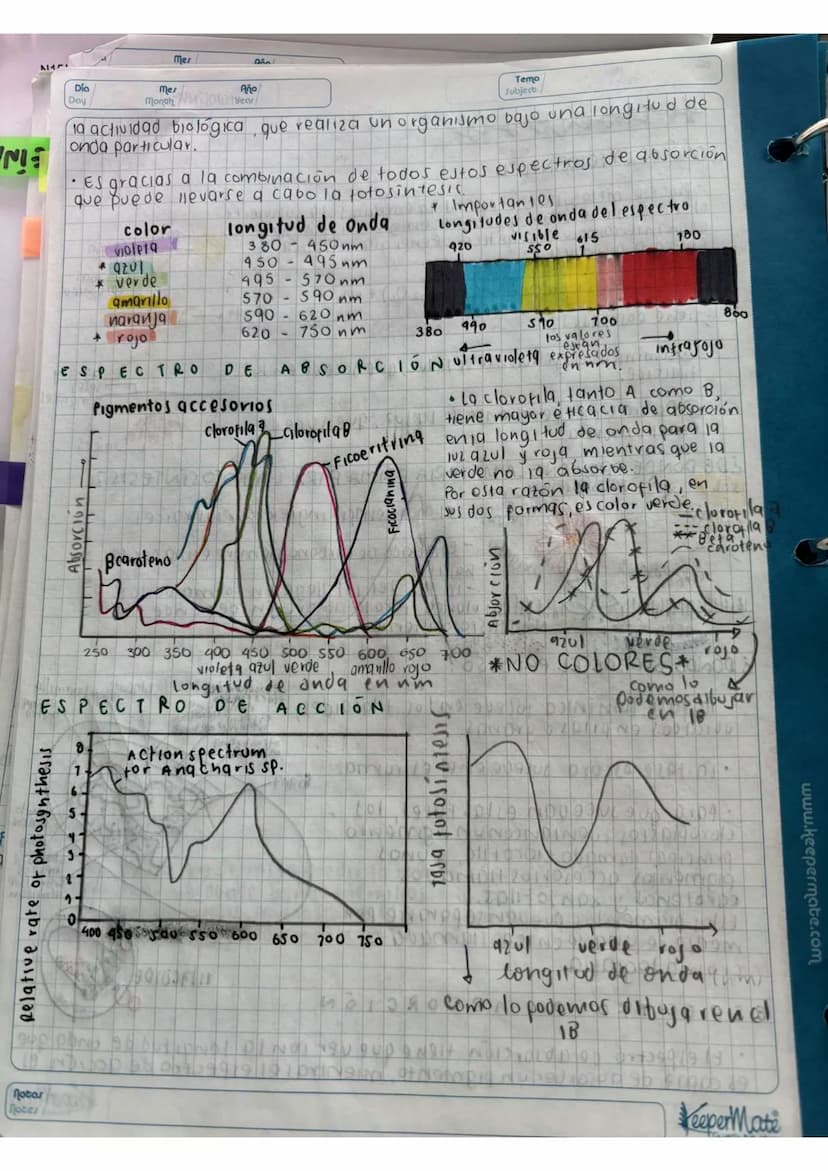 Mes
Día
Day
Mes
Month
Año
Year
Tema
Subject
la actividad biológica, que realiza un organismo bajo una longitud de
onda particular.
· Es gracias a la combinación de todos estos espectros de absorción
que puede llevarse a cabo la fotosíntesis.
* Importantes
color longitud de onda
violeta 380 - 450nm
* azul 450 - 495nm
* verde 495 - 570nm
amarillo 570 - 590nm
naranja 590 - 620nm
* rojo 620 - 750nm
Longitudes de onda del espectro
visible
420 550 615 780
380 490 590 700 860
ultravioleta
los valores
están
expresados
en nm.
infrarojo
ESPECTRO DE ABSORCIÓN
Pigmentos accesorios
Clorofila a
Clorofila B
Ficoeritrina
Ficocianina
Bcaroteno
Absorción
250 300 350 400 450 500 550 600 650 700
violeta azul verde amarillo rojo
longitud de onda en nm
· La clorofila, tanto A como B,
tiene mayor eficacia de absorción
en la longitud de onda para la
luz azul y roja mientras que la
verde no la absorbe.
Por esta razón la clorofila, en
sus dos formas, es color verde.
clorofila a
clorofila B
Beta
caroteno
Absorción
azul verde rojo
*NO COLORES*
como lo
podemos dibujar
en IB
ESPECTRO DE ACCIÓN
Relative rate of photosynthesis
Action spectrum
for Anacharis sp.
8
7
6
5
4
3
1
0
400 450 500 550 600 650 700 750
tasa fotosíntesis
azul verde rojo
longitud de onda
como lo podemos dibujar en el
IB
Notas
Notes
KeeperMate
www.keepermate.com